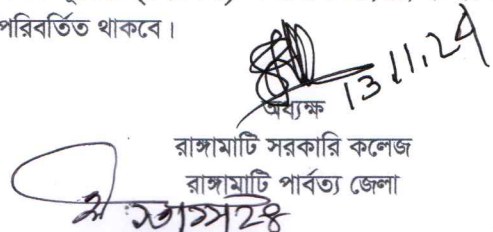 পরিবর্তিত থাকবে।
13.11.24
অধ্যক্ষ
রাঙ্গামাটি সরকারি কলেজ
রাঙ্গামাটি পার্বত্য জেলা